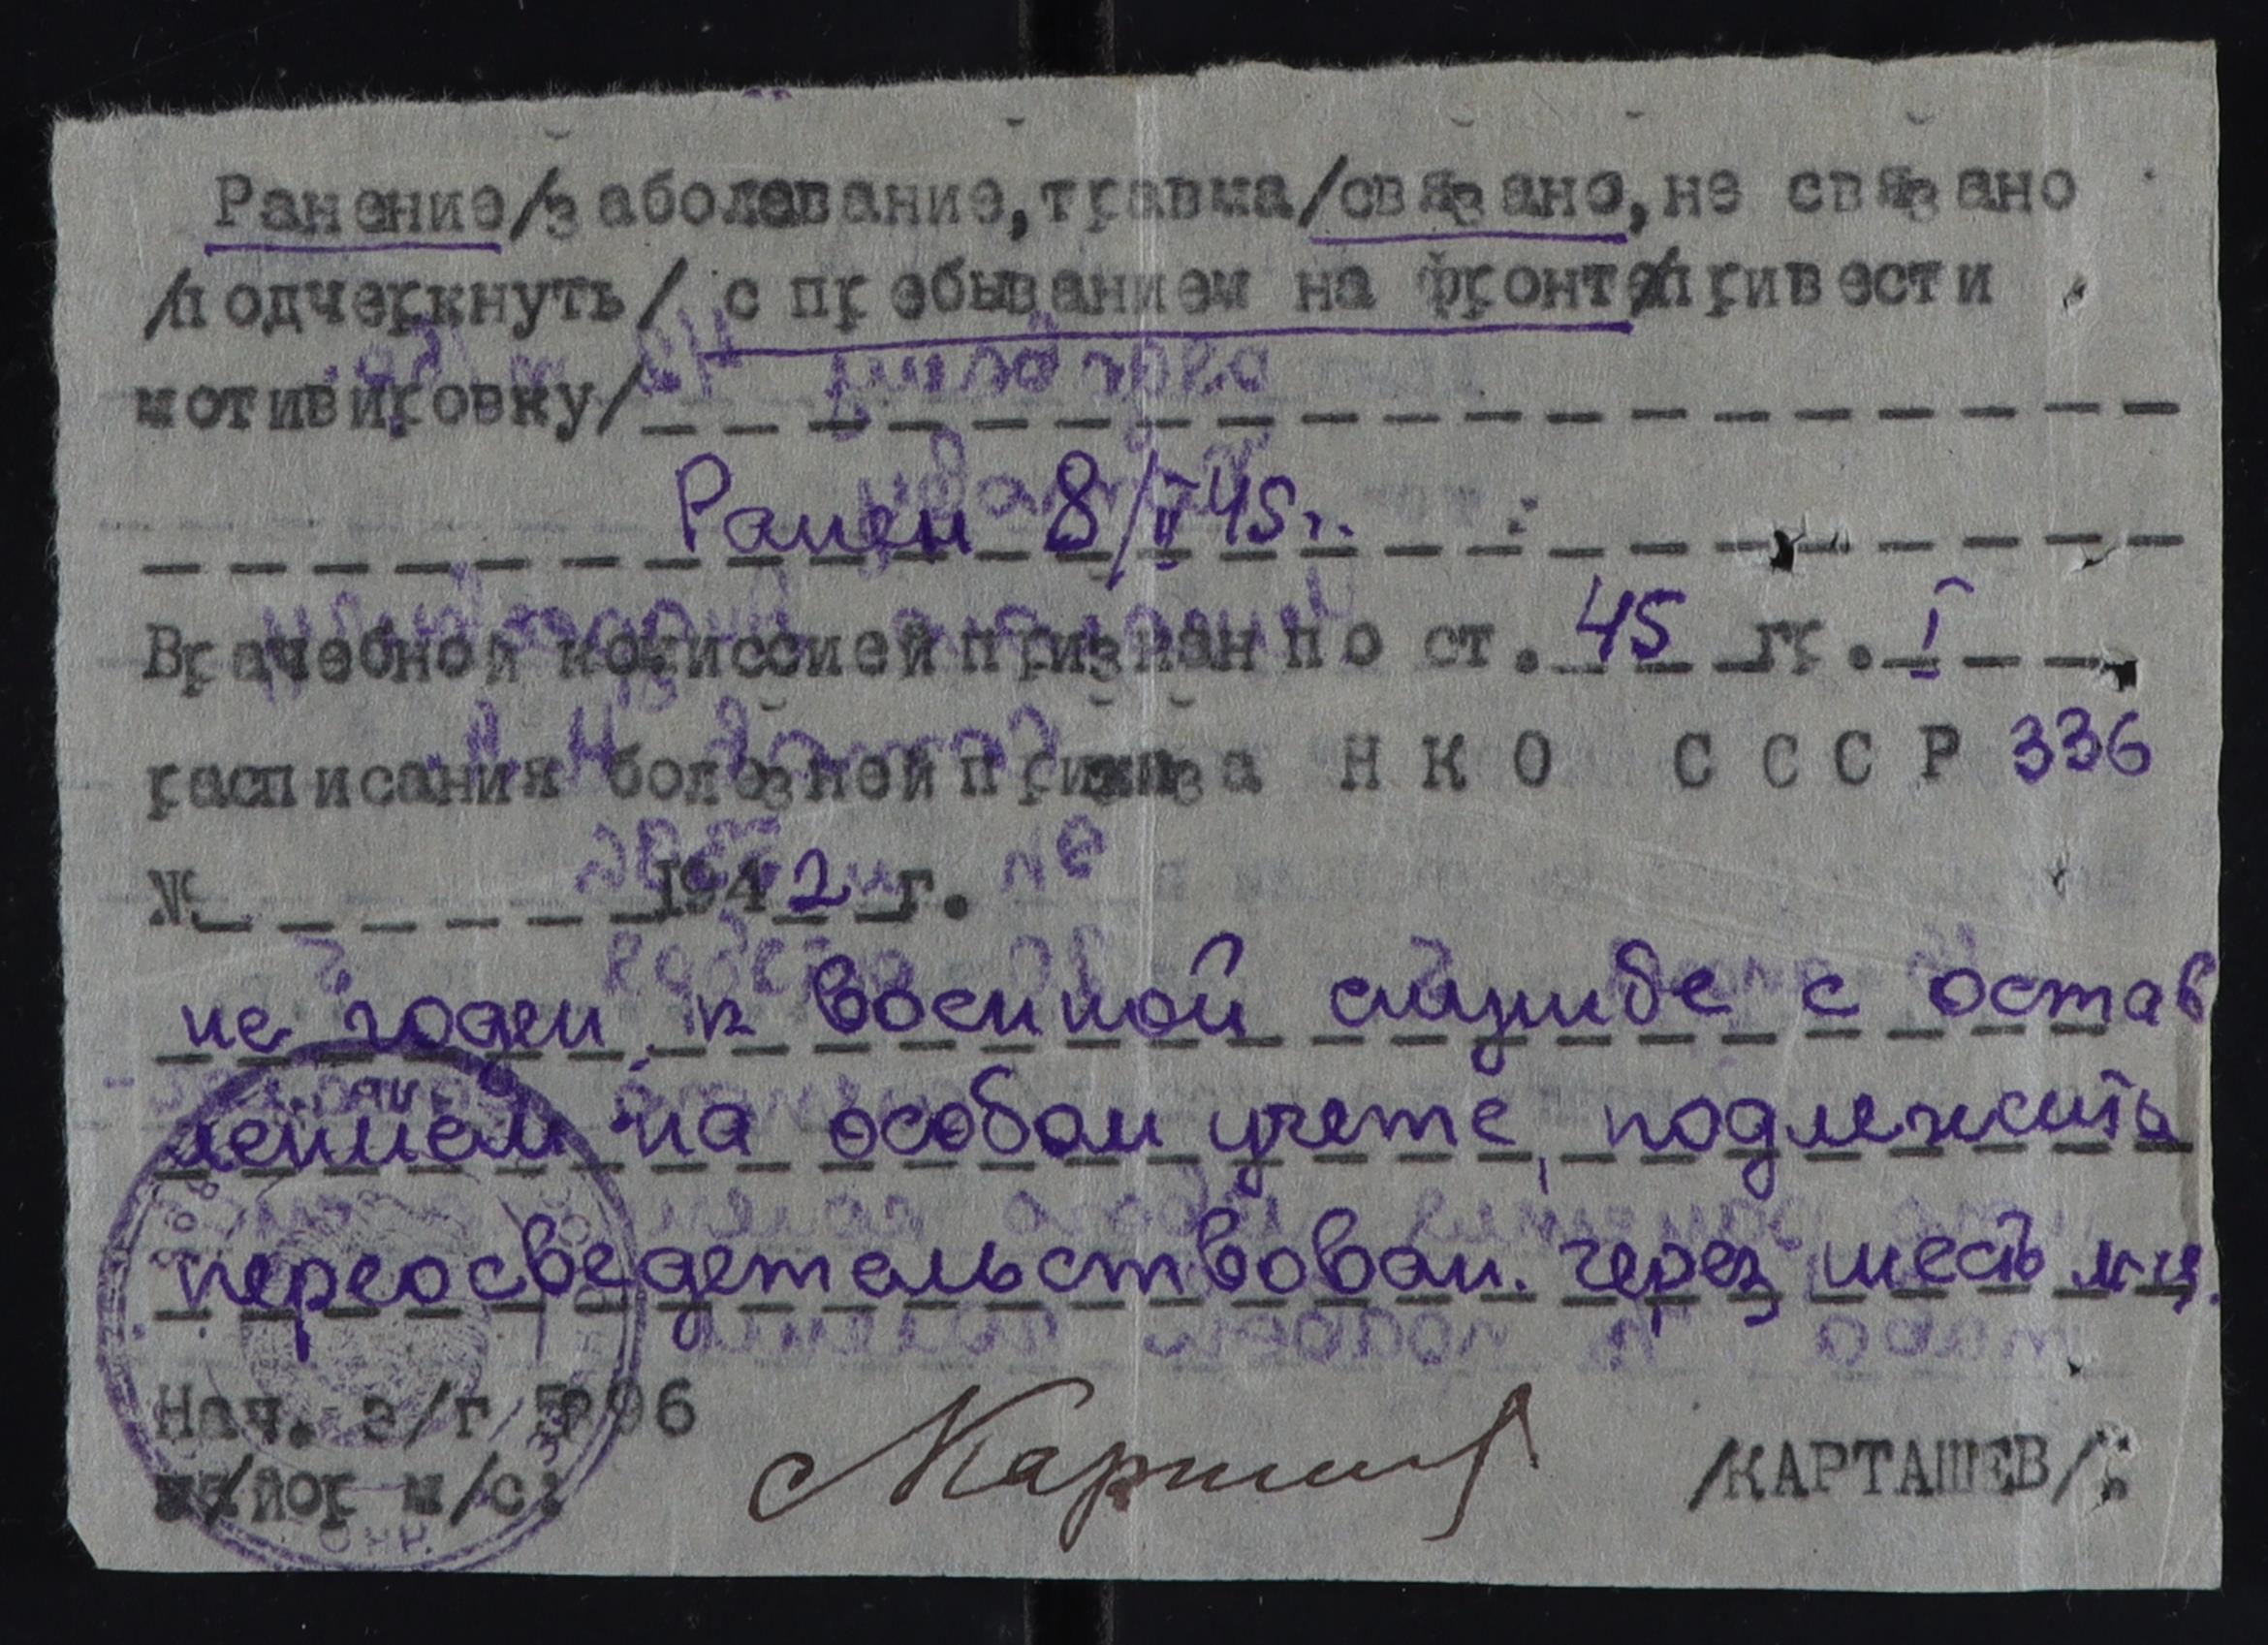 Ранение/заболевание, травма/связано, не связано
/подчеркнуть/ с пребыванием на фронте/привести
мотивировку/
Ранен 8/II 45 г.
Врачебной комиссией признан по ст. 45 гр. I
расписания болезней приказа НКО СССР 336
№ 1942 г.
не годен к военной службе с остав
лением на особом учете, подлежить
переосведетельствован. через шесть м-ц.
Нач. э/г 5996
майор м/с:
/КАРТАШЕВ/: